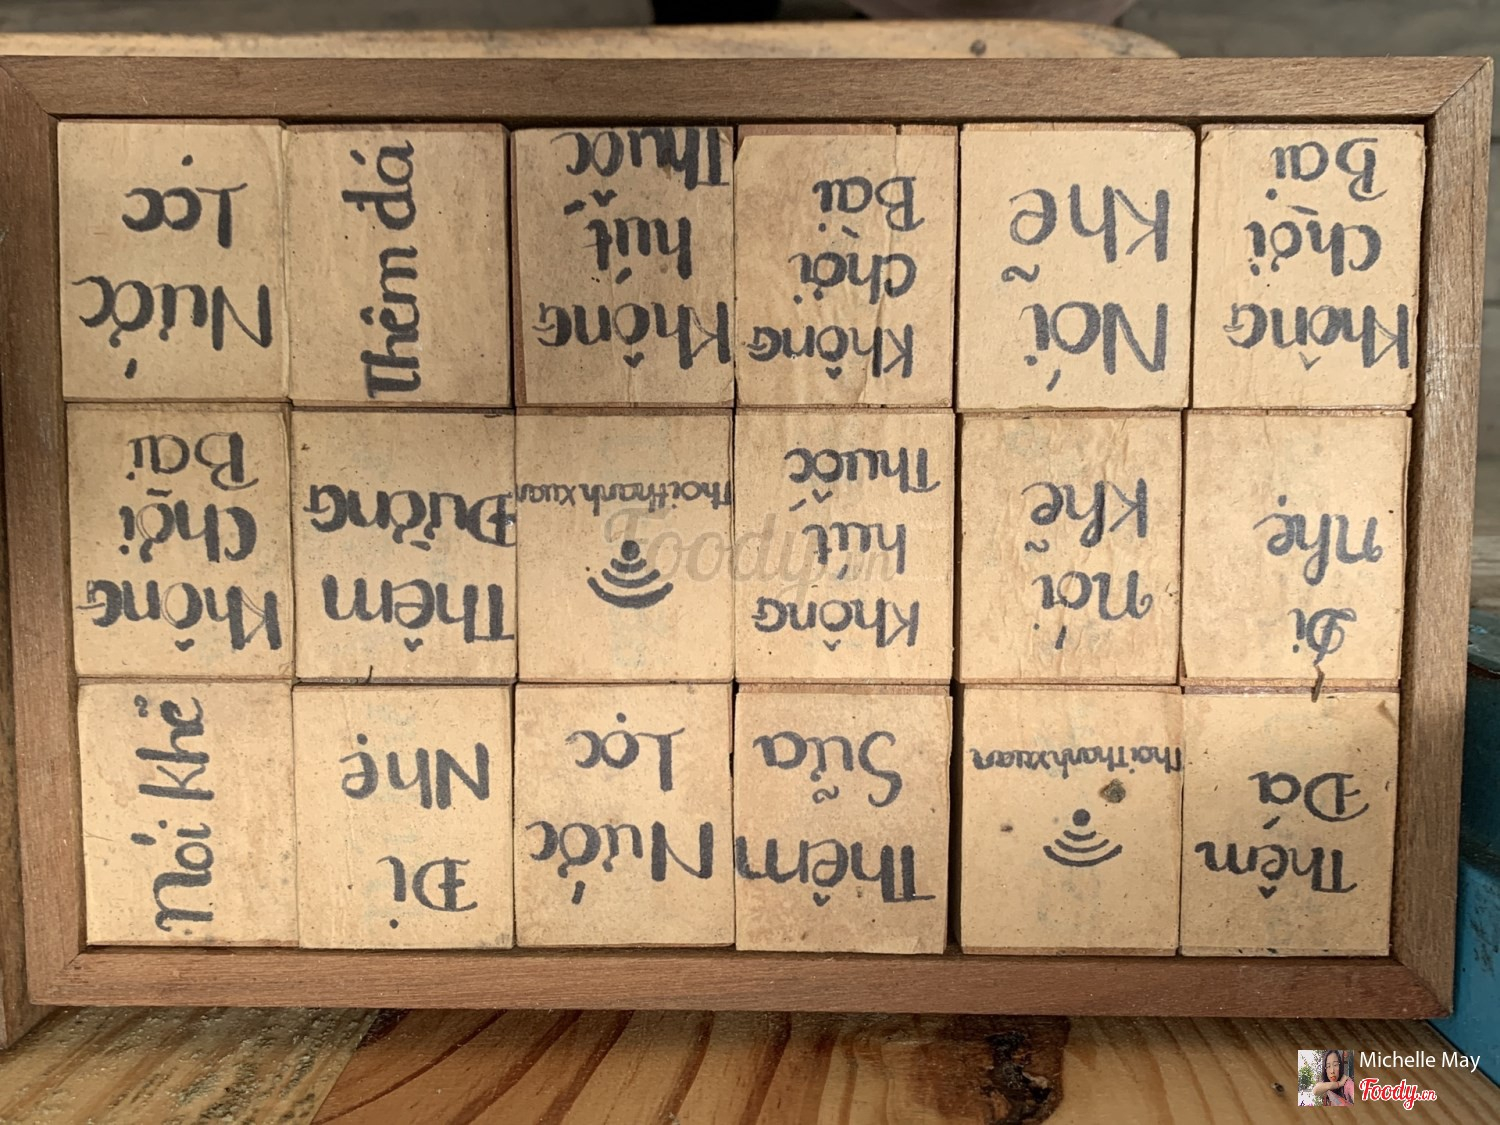 Nước
Lọc
Thêm đá
Không
hút
Thuốc
Không
chơi
Bài
Nói
Khẽ
Không
chơi
Bài
Không
chơi
Bài
Thêm
Đường
Thoithanhxuan
Không
hút
Thuốc
nói
Khẽ
Đi
nhẹ
nói khẽ
Đi
Nhẹ
Nước
Lọc
Thêm
Sữa
ThoiThanhxuan
Thêm
Đá
Foody.vn
Michelle May
Foody.vn